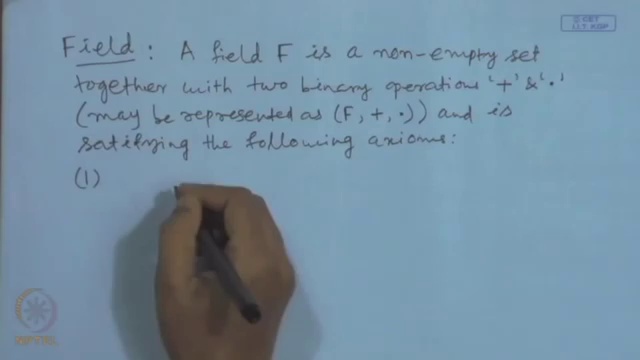 © CET
I.I.T. KGP
Field : A field F is a non-empty set
together with two binary operations '+' & '·'
(may be represented as (F, +, ·)) and is
satifying the following axioms:
(1)
NPTEL